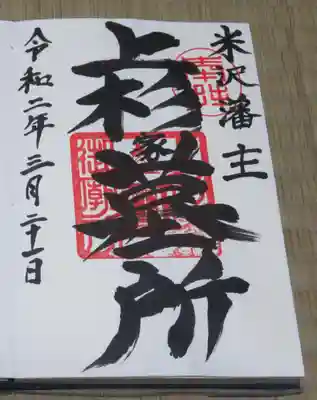 奉拝
米沢藩主
上杉家墓所
令和二年三月二十一日